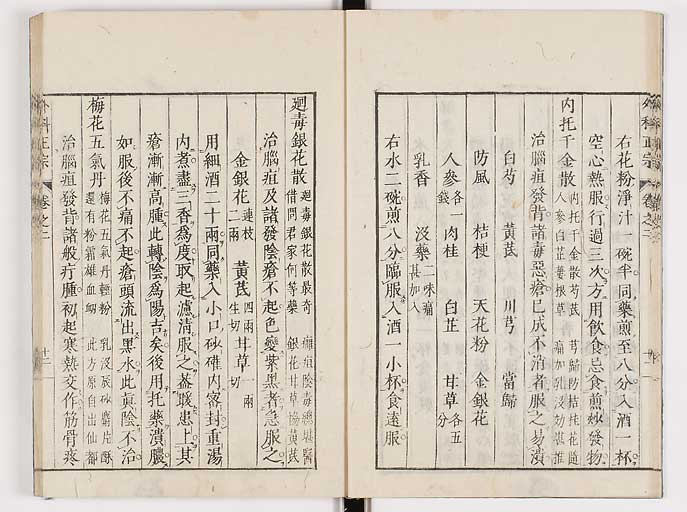 外科正宗 卷之二
右花粉淨汁一碗半同藥煎至八分入酒一杯
空心熱服行過三次方用飲食忌食煎炒發物
內托千金散 內托千金散芍芪 芎歸防桔桂花隨 人參白芷蔞根草 痛加乳沒効堪推
治腦疽發背諸毒惡瘡已成不消者服之易潰
白芍 黃芪 川芎 當歸
防風 桔梗 天花粉 金銀花
人參各一錢 肉桂 白芷 甘草各五分
乳香 沒藥二味痛甚加入
右水二碗煎八分臨服入酒一小杯食遠服
廻毒銀花散 廻毒銀花散最奇 癰疽陰毒總堪醫 借問君家何等藥 銀花甘草協黃芪
治腦疽及諸發陰瘡不起色變紫黑者急服之
金銀花連枝二兩 黃芪四兩生切 甘草一兩切
用細酒二十兩同藥入小口砂礶內密封重湯
內煮盡三香為度取起濾清服之蓋暖患上其
瘡漸漸高腫此轉陰為陽吉矣後用托藥潰膿
如服後不痛不起瘡頭流出黑水此真陰不治
梅花五氣丹 梅花五氣丹輕粉 乳沒辰砂麝片酥 還有粉霜雄血竭 此方原自出仙都
治腦疽發背諸般疔腫初起寒熱交作筋骨疼
外科正宗 卷之二 十二